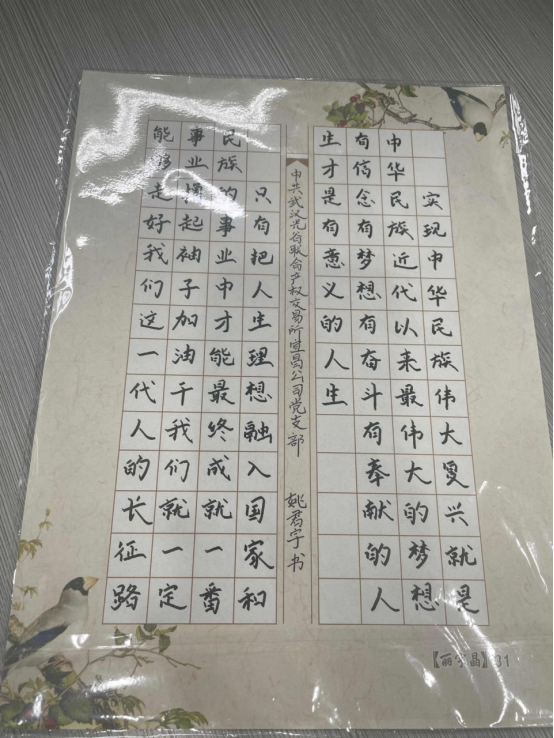 实现中华民族伟大复兴就是
中华民族近代以来最伟大的梦想
有信念有梦想有奋斗有奉献的人
生才是有意义的人生
中共武汉光谷联合产权交易所宜昌公司党支部 姚君宇书
只有把人生理想融入国家和
民族的事业中才能最终成就一番
事业撸起袖子加油干我们就一定
能够走好我们这一代人的长征路